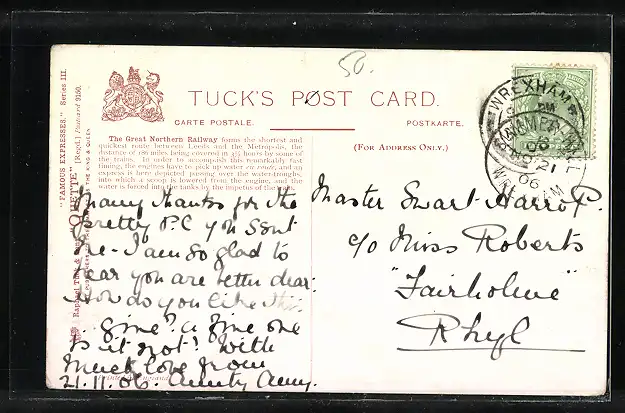 50.
TUCK'S POST CARD.
CARTE POSTALE.
POSTKARTE.
(FOR ADDRESS ONLY.)
"FAMOUS EXPRESSES." Series III.
"OILETTE" [Regd.] Postcard 9150.
The Great Northern Railway forms the shortest and
quickest route between Leeds and the Metropolis, the
distance of 186 miles being covered in 3½ hours by some of
the trains. In order to accomplish this remarkably fast
timing, the engines have to pick up water en route, and an
express is here depicted passing over the water-troughs,
into which a scoop is lowered from the engine, and the
water is forced into the tanks by the impetus of the
WREXHAM
06
Many thanks for the
pretty P.C you sent
me - I am so glad to
hear you are better dear.
How do you like this
engine? a fine one
is it not? With
much love from
21.11.06. Aunty Amy.
Master Stuart Harrop.
c/o Miss Roberts
"Fairholme"
Rhyl